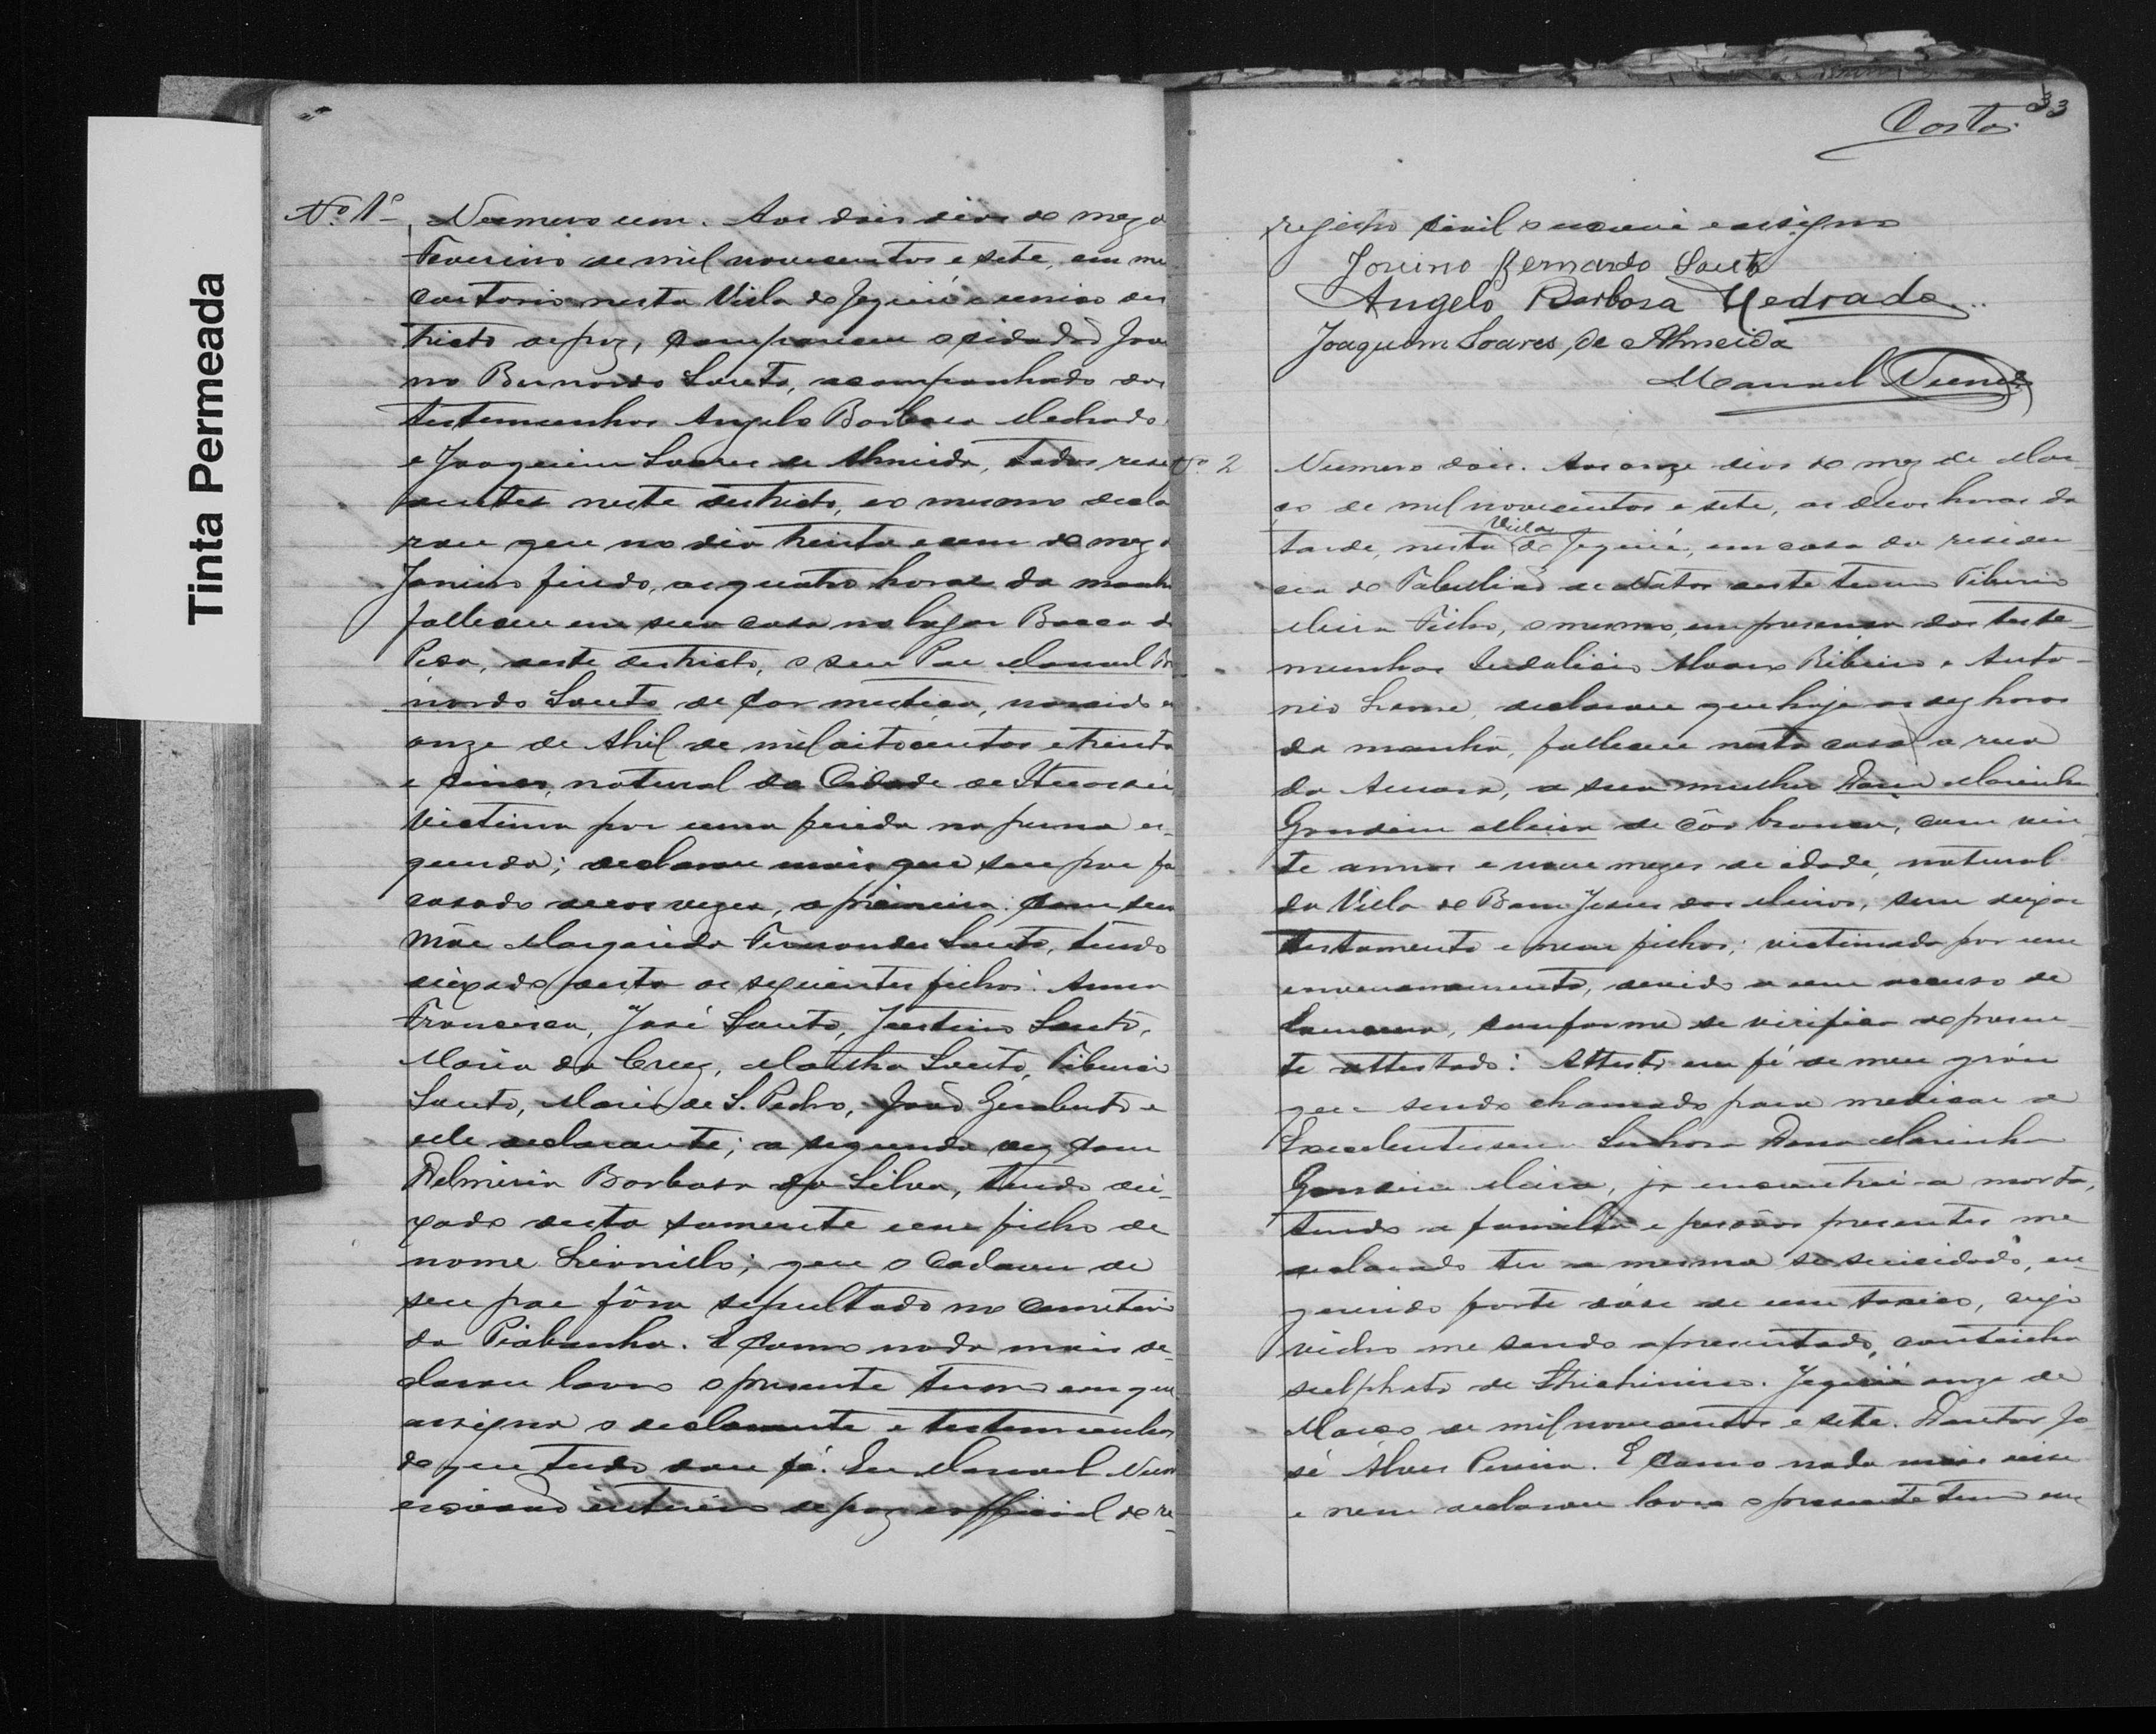 Tinta Permeada
Nº 1º
Numero um. Aos dois dias do mez d
Fevereiro de mil novecentos e sete, em me
cartorio nesta Villa de Jequié e unico des
tricto de paz, compareceu o cidadão Jovi
no Bernardo Souto, acompanhado das
testemunhas Angelo Barbosa Medrado
e Joaquim Soares de Almeida, todos resi
dentes neste districto, e o mesmo decla
rou que no dia trinta e um do mez d
Janeiro findo, as quatro horas da manhã
falleceu em sua casa no lugar Bocca d
, deste districto, o seu Pae Manoel Be
nardo Souto de cor mestiça, nascido a
onze de Abril de mil oitocentos e trinta
e cinco, natural da Cidade de
victima por uma ferida na perna es-
querda; declarou mais que seu pae fo
casado duas vezes, a primeira com sua
Mãe Margarida Fernandes Souto, tendo
deixado desta os seguintes filhos: Anna
Francisca, José Souto, Justino Souto,
Maria da Cruz, Martha Souto, Tiburcio
Souto, Maria de S. Pedro, João Gualberto e
elle declarante; a segunda vez com
Delmiria Barbosa da Silva, tendo dei-
xado desta somente um filho de
nome Leonillo; que o cadaver de
seu pae fôra sepultado no cemiterio
da Piabanha. E como nada mais de-
clarou lavro o presente termo em que
assigna o declarante e testemunhas
do que tudo dou fé. Eu Manoel Nunes
escrivão interino de paz e official do re-
33
Costa
registro civil o escrevi e assigno
Jovino Bernardo Souto
Angelo Barbosa Medrado
Joaquim Soares, de Almeida
Manoel Nunes
Nº 2
Numero dois. Aos onze dias do mez de Mar-
ço de mil novecentos e sete, as duas horas da
tarde, nesta Villa de Jequié, em casa da residen-
cia do Tabellião de Notas deste termo Tiburcio
Meira Filho, o mesmo, em presença das teste-
munhas Indalicio Alvares Ribeiro e Anto-
nio Leone, declarou que hoje as dez horas
da manhã, falleceu nesta casa a rua
da Aurora, a sua mulher Dona Marinha
Gondim Meira de côr branca, com vin-
te annos e nove mezes de idade, natural
da Villa de Bom Jesus dos Meiras, sem deixar
testamento e nem filhos; victimada por um
envenenamento, devido a um accesso de
loucura, conforme se verifica do presen-
te attestado: Attesto em fé de meu gráu
que sendo chamado para medicar a
Excellentissima Senhora Dona Marinha
Gondim Meira, já encontrei-a morta,
tendo a familia e pessôas presentes me
declarado ter a mesma se suicidado, in-
gerindo forte dóse de um toxico, cujo
vidro me sendo apresentado, continha
sulphato de Strichinina. Jequié onze de
Março de mil novecentos e sete. Doutor Jo-
sé Alves Pereira. E como nada mais disse
e nem declarou lavro o presente termo em